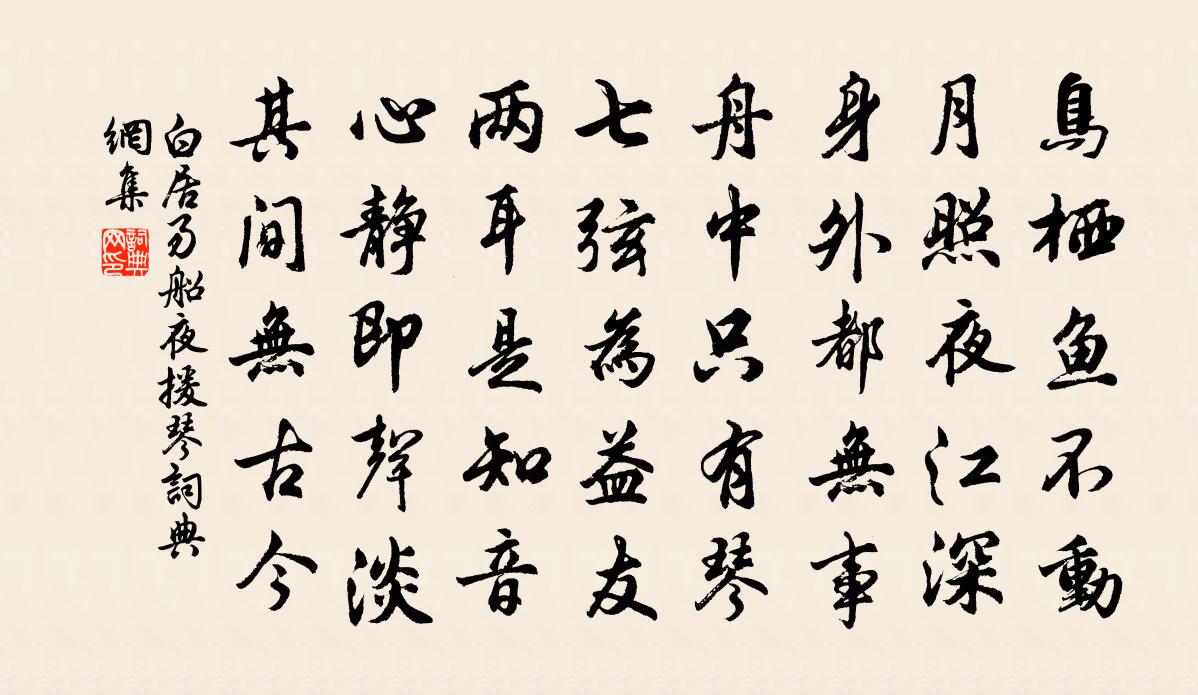 鳥栖鱼不動
月照夜江深
身外都無事
舟中只有琴
七弦為益友
两耳是知音
心静即聲淡
其间無古今
白居易船夜援琴詞典
網集
詞典
网印